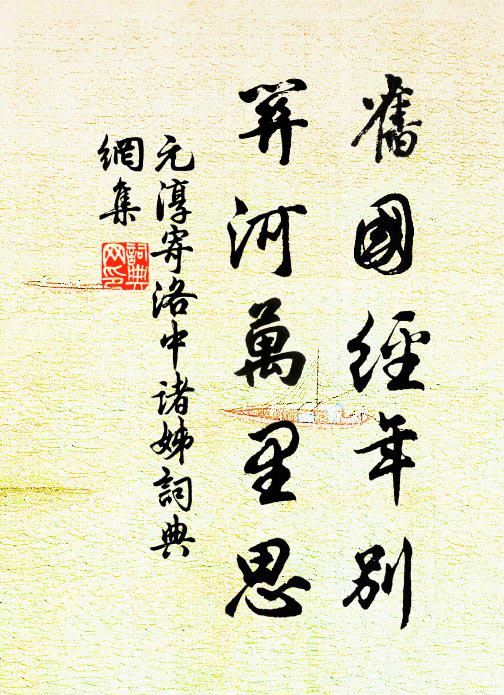 舊國經年別
關河萬里思
元淳寄洛中諸姊詞典
網集
詞典
网印